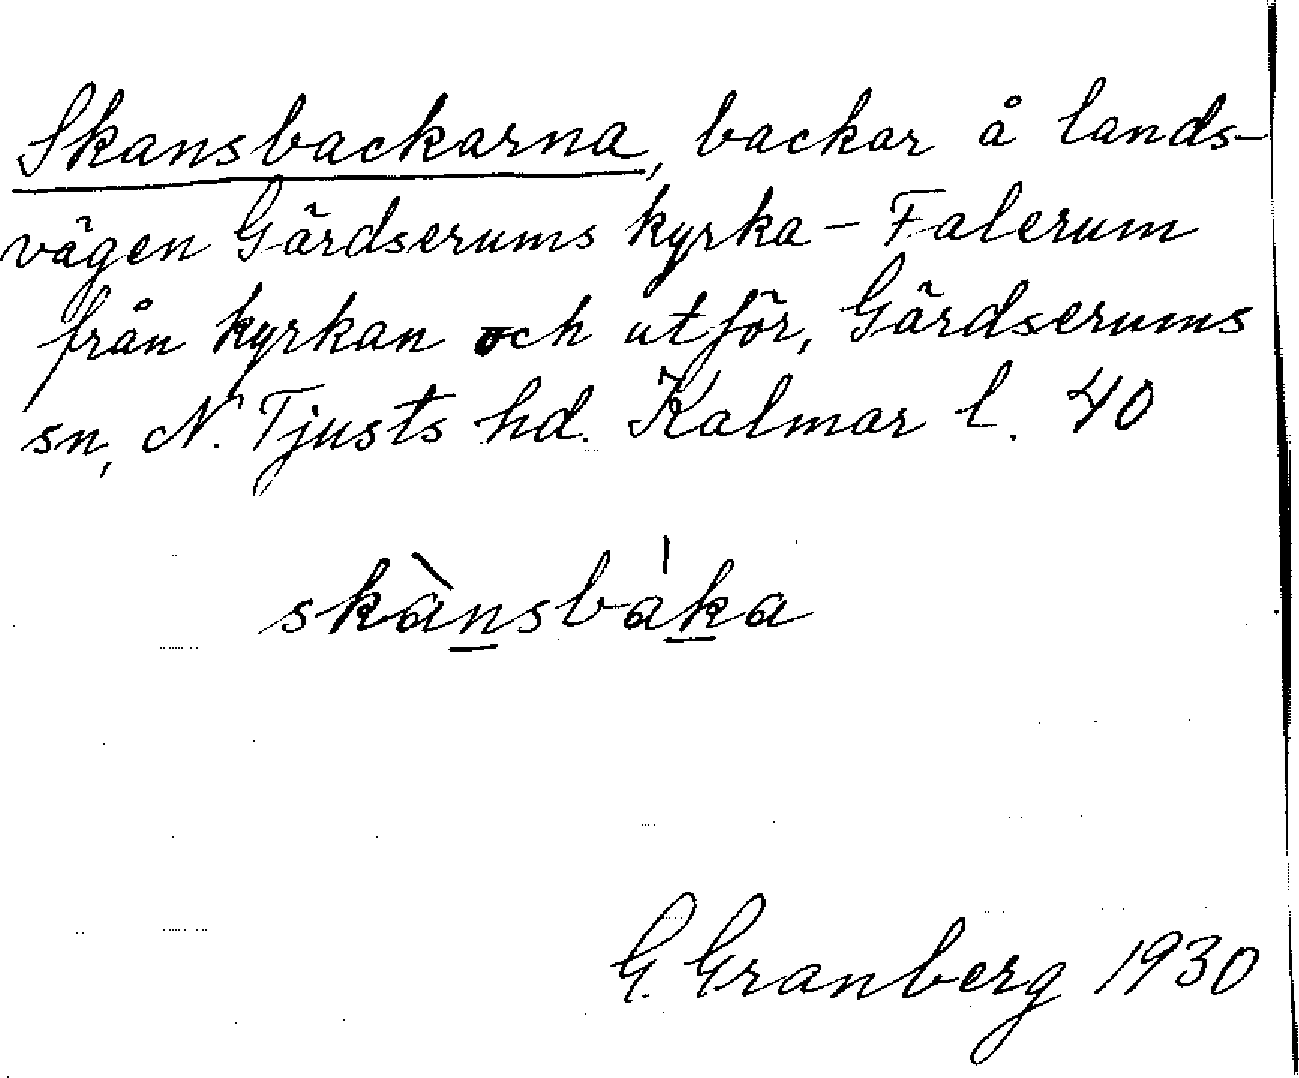 Skansbackarna, backar å lands-
vägen Gärdserums kyrka - Falerum
från kyrkan och utför, Gärdserums
sn, N. Tjusts hd. Kalmar l. 40
skànsbàka
G. Granberg 1930